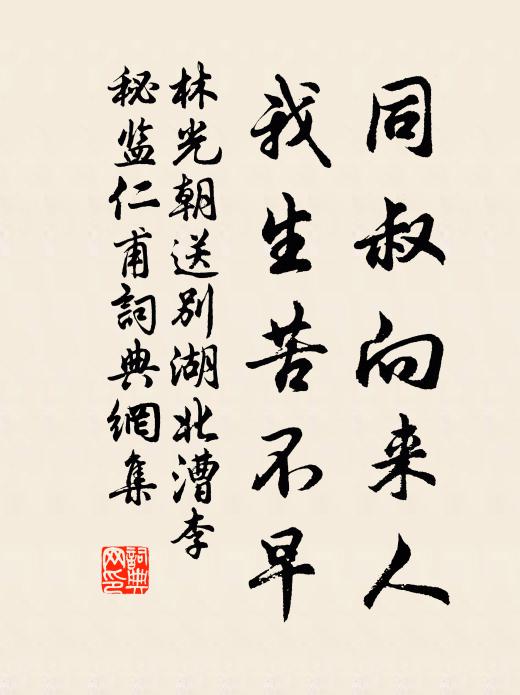 同叔向来人
我生苦不早
林光朝送别湖北漕李
秘监仁甫詞典網集
詞典
网印